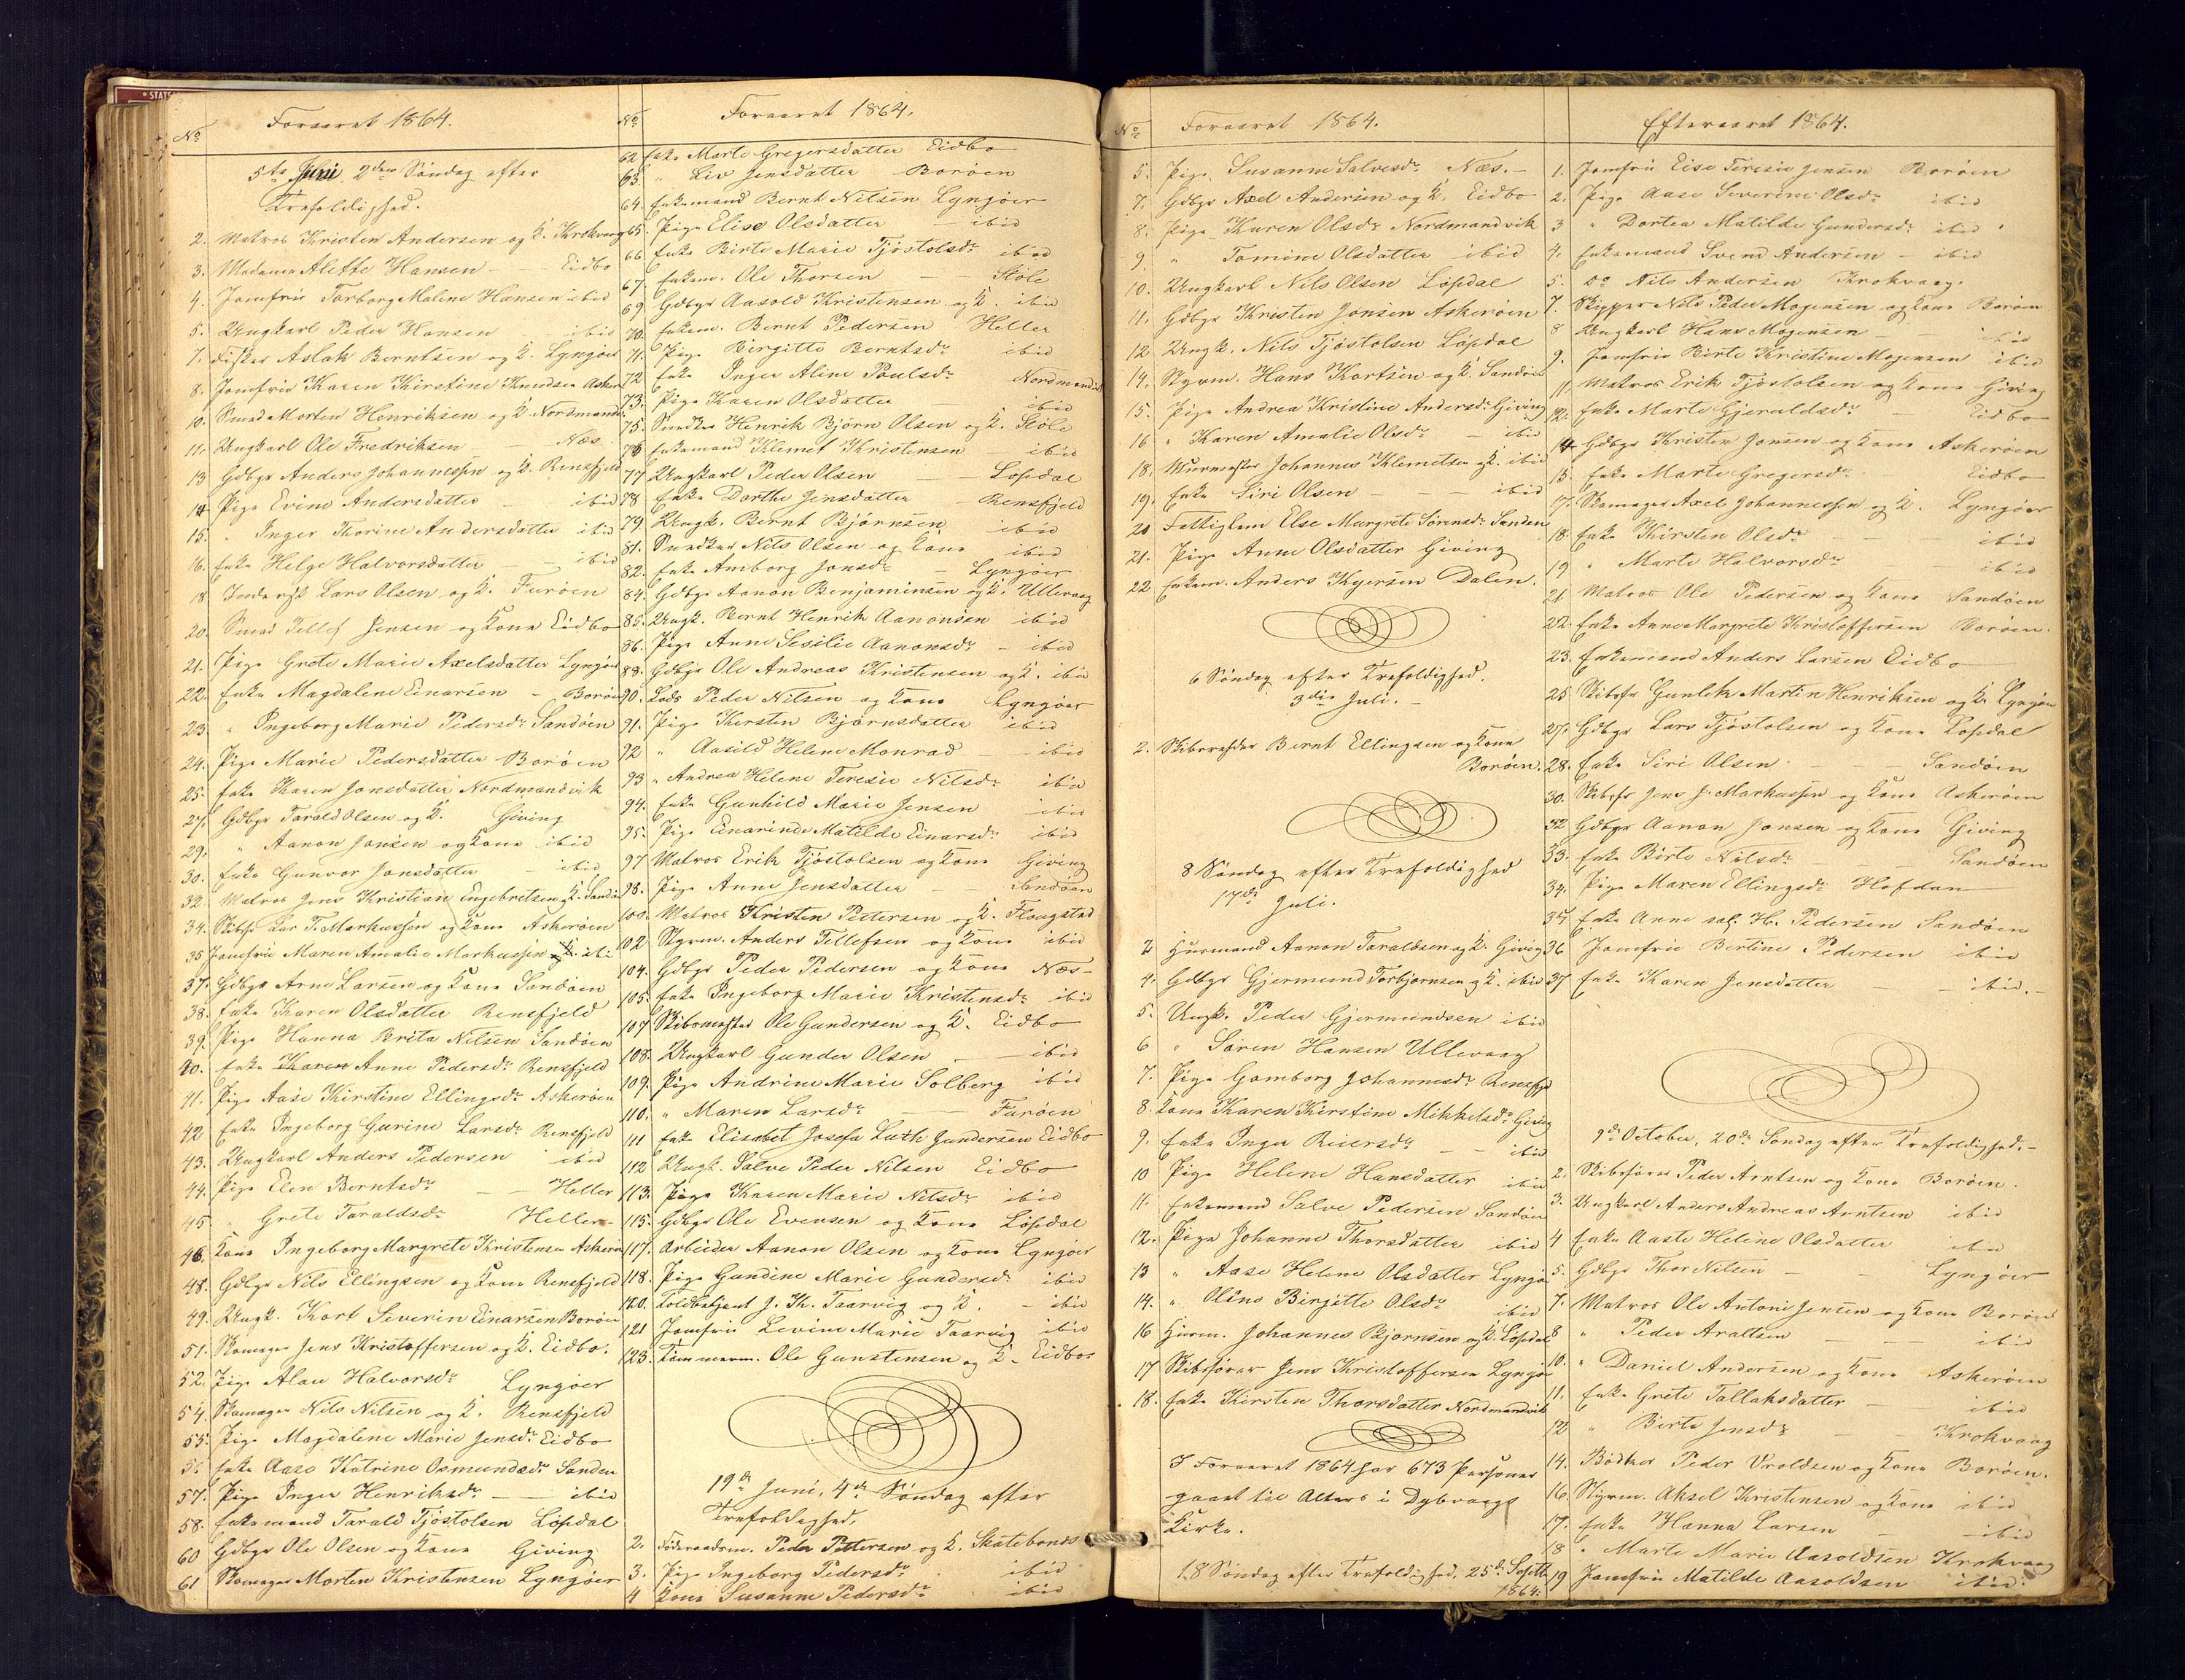 Foraaret 1864.
No
5te Juni, 2den Søndag efter
Trefoldighed.
2. Matros Kristen Andersen og K. Krokvaag
3. Madame Alette Hansen - Eidbo
4. Jomfru Torborg Maline Hansen ibid
5. Ungkarl Peder Hansen ibid
7. Fisker Aslak Berntsen og K. Lyngøer
8. Jomfru Karen Kirstine Knudsen Asker
10. Smed Morten Henriksen og K. Nordmands
11. Ungkarl Ole Fredriksen - Næs.
13 Gdbgr Anders Johannessen og K. Rensfjeld
14 Pige Evine Andersdatter ibid
15. " Inger Thorine Andersdatter ibid
16. Enke Helge Halvorsdatter - ibid
18 Lars Olsen og K. Furøen
20. Smed Tellef Jensen og Kone Eidbo
21. Pige Grete Marie Axelsdatter Lyngør
22. Enke Magdalene Einarsen - Borøen
23. " Ingeborg Marie Pedersdr Sandøen
24. Pige Marie Pedersdatter Borøen
25. Enke Karen Jonsdatter Nordmandvik
27. Gdbgr Tarald Olsen og K. Giving
29. " Aanon Jonsen og Kone ibid
30. Enke Gunvor Jonsdatter - ibid
32. Matros Jens Kristian Engebretsen og K. Sandø
34. Skibsf. Lar T. Markussen og Kone Askerøen
35 Jomfru Maren Amalie Markussen ibi
37. Gdbgr Arne Larsen og Kone Sandøen
38. Enke Karen Olsdatter Rensfjeld
39. Pige Hanna Brita Nilsen Sandøen
40. Enke Karen Anne Pedersdr Rensfjeld
41. Pige Aase Kirstine Ellingsdr Askerøen
42 Enke Ingeborg Gurine Larsdr Rensfjeld
43. Ungkarl Anders Pedersen ibid
44. Pige Elen Berntsdr - Heller
45 " Grete Taraldsdr Heller
46. Kone Ingeborg Margrete Kristensen Askerø
48. Gdbgr Nils Ellingsen og Kone Rensfjeld
49. Ungk. Kort Severin Einarsen Borøen
51. Skomager Jens Kristoffersen og K. Eidbo.
52. Pige Alau Halvorsdr Lyngøer
54. Skomager Nils Nilsen og K. Rensfjeld
55. Pige Magdalene Marie Jensdr Eidbo
56 Enke Aase Katrine Osmundsdr Sanden
57. Pige Inger Henriksdr - ibid
58. Enkemand Tarald Tjøstolsen Løpdal
60 Gdbgr Ole Olsen og Kone Giving
61 Skomager Morten Kristensen Lyngøer
No
Foraaret 1864.
62 Enke Marte Gregersdatter Eidbo
63. " Liv Jensdatter Borøen
64. Enkemand Bernt Nilsen Lyngøer
65. Pige Elise Olsdatter - ibid
66 Enke Birte Marie Tjøstolsdr ibid
67. Enkem. Ole Thorsen - Støle
69 Gdbgr Aasold Kristensen og K. ibid
70. Enkem. Bernt Pedersen Heller
71. Pige Birgitte Berntsdr ibid
72 Enke Inger Aline Poulsdr Nordmandvi
73. Pige Karen Olsdatter ibid
75. Snedker Henrik Bjørn Olsen og K. Støle
76 Enkemand Klemet Kristensen - ibid
77 Ungkarl Peder Olsen - Løpdal
78 Enke Dorthe Jensdatter - Rensfjeld
79. Ungk. Bernt Bjørnsen ibid
81. Snedker Nils Olsen og Kone ibid
82. Enke Amborg Jonsdr - Lyngøer
84. Gdbgr Aanon Benjaminsen og K. Ullevaag
85. Ungk. Bernt Henrik Aanonsen ibid
86. Pige Anne Sesilie Aanonsdr - ibid
88. Gdbgr Ole Andreas Kristensen og K. ibid
90. Lods Peder Nilsen og Kone Lyngøer
91. Pige Kirsten Bjørnsdatter ibid
92 " Aasild Helene Monrad - ibid
93 " Andrea Helene Teresie Nilsdr ibid
94. Enke Gunhild Marie Jensen ibid
95. Pige Einarinde Matilde Einarsdr ibid
97 Matros Erik Tjøstolsen og Kone Giving
98. Pige Anne Jensdatter - Sandøen
100. Matros Kristen Pettersen og K. Flougstad
102 Styrm. Anders Tellefsen og Kone ibid
104. Gdbgr Peder Pedersen og Kone Næs
105. Enke Ingeborg Marie Kristensdr ibid
107 Skibsmester Ole Gundersen og K. Eidbo
108. Ungkarl Gunder Olsen - ibid
109. Pige Andrine Marie Solberg ibid
110. " Maren Larsdr - Furøen
111 Enke Elisabet Josefa Luth Gundersen Eidbo
112 Ungk. Salve Peder Nilsen Eidbo
113. Pige Karen Marie Nilsdr ibid
115. Gdbgr Ole Evensen og Kone Løpdal
117. Arbeider Aanon Olsen og Kone Lyngøer
118. Pige Gundine Marie Gundersdr ibid
120. Toldbetjent J. Th. Taarvig og K. - ibid
121 Jomfru Levine Marie Taarvig ibid
123. Tømmerm. Ole Gunstensen og K. Eidbo
19de Juni, 4de Søndag efter
Trefoldighed.
2. Føderaadsm. Peder Pettersen og K. Skatebonds
3. Pige Ingeborg Pedersdr ibid
4 Kone Susanne Pedersdr ibid
No
Foraaret 1864.
5. Pige Susanne Salvesdr Næs.
7. Gdbgr Axel Andersen og K. Eidbo
8. Pige Karen Olsdr Nordmandvik
9. " Tomine Olsdatter ibid
10. Ungkarl Nils Olsen Løpdal
11. Gdbgr Kristen Jonsen Askerøen
12 Ungk. Nils Tjøstolsen Løpdal
14. Styrm. Hans Kortsen og K. Sandøe
15. Pige Andrea Kristine Andersdr Giving
16 " Karen Amalie Olsdr - ibid
18. Murmester Johannes Klemetsen og K. ibid
19. Enke Siri Olsen - ibid
20 Fattiglem Else Margrete Sørensdr Sanden
21. Pige Anne Olsdatter Giving
22 Enkem. Anders Kyersen Dalen.
6 Søndag efter Trefoldighed.
3die Juli.
2. Skibsreder Bernt Ellingsen og Kone
Borøen.
8 Søndag efter Trefoldighed
17de Juli.
2 Husmand Aanon Taraldsen og K. Giving
4. Gdbgr Gjermund Torbjørnsen og K. ibid
5. Ungk. Peder Gjermundsen ibid
6 " Søren Hansen Ullevaag
7. Pige Gomborg Johannesdr Rensfje
8. Kone Karen Kirstine Mikkelsdr Giving
9. Enke Inger Reiersdr - ibid
10 Pige Helene Hansdatter ibid
11. Enkemand Salve Pedersen Sandøen
12. Pige Johanne Thorsdatter ibid
13 " Aase Helene Olsdatter Lyngø
14. " Oline Birgitte Olsdr ibid
16 Husm. Johannes Bjørnsen og K. Løpdal
17 Skibsfører Jens Kristoffersen Lyngø
18. Enke Kirsten Thorsdatter Nordmandvik
I Foraaret 1864 har 673 Personer
gaaet til Alters i Dybvaags
Kirke.
18 Søndag efter Trefoldighed, 25de Septb
1864.
Efteraaret 1864.
1. Jomfru Elise Teresie Jensen Borøen
2. Pige Aase Severine Olsdr ibid
3 " Dortea Matilde Gundersdr ibid
4. Enkemand Svend Andersen - ibid
5. Do Nils Andersen Krokvaag.
7. Skipper Nils Peder Mogensen og Kone Borøen
8 Ungkarl Hans Mogensen - ibid
9. Jomfru Birte Kristine Mogensen ibid
11. Matros Erik Tjøstolsen og Kone Giving
12. Enke Marte Gjeraldsdr - Eidbo
14 Gdbgr Kristen Jonsen og Kone Askerøen
15. Enke Marte Gregersdr Eidbo
17. Skomager Axel Johannessen og K. Lyngøer
18. Enke Kirsten Olsdr - ibid
19 " Marte Halvorsdr - ibid
21 Matros Ole Pedersen og Kone Sandøen
22. Enke Anne Margrete Kristoffersen Borøen.
23. Enkemand Anders Larsen Eidbo
25. Skibsfr Gunlek Martin Henriksen og K. Lyngør
27. Gdbgr Lars Tjøstolsen og Kone Løpdal
28. Enke Siri Olsen - Sandøen
30. Skibsfr Jens J. Markussen og Kone Askerøen
32 Gdbgr Aanon Jonsen og Kone Giving
33. Enke Birte Nilsdr - Sandøen
34. Pige Maren Ellingsdr Hofdan
35 Enke Anne sal. H. Pedersen Sandøen
36 Jomfru Bertine Pedersen ibid
37 Enke Karen Jensdatter - ibid.
9de October, 20de Søndag efter Trefoldighed.
2. Skibsfører Peder Arntsen og Kone Borøen.
3. Ungkarl Anders Andreas Arntsen ibid
4 Enke Aaste Helene Olsdatter ibid
5. Gdbgr Thor Nilsen - Lyngøer
7. Matros Ole Antoni Jensen og Kone Borøen
8 " Peder Araltsen - ibid
10. " Daniel Andersen og Kone Askerøen
11. Enke Grete Tallaksdatter - ibid
12 " Birte Jensdr - Krokvaag
14. Bødker Peder Vroldsen og Kone Borøen.
16. Styrm. Aksel Kristensen og Kone ibid
17. Enke Hanna Larsen - ibid
18 " Marte Marie Aasoldsen Krokvaag
19 Jomfru Matilde Aasoldsen ibid.